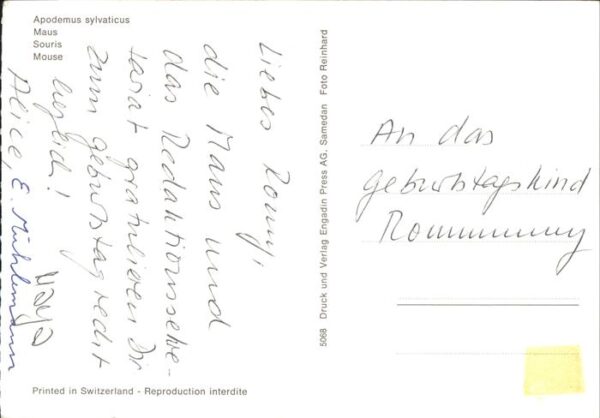 Apodemus sylvaticus
Maus
Souris
Mouse
Liebes Romy,
die Maus und
das Redaktionssekre-
tariat gratulieren Dir
zum Geburtstag recht
herzlich!
Alice, E. Mühlemann
Maya
5068 Druck und Verlag Engadin Press AG, Samedan Foto Reinhard
An das
Geburtstagskind
Rommmmy
Printed in Switzerland - Reproduction interdite